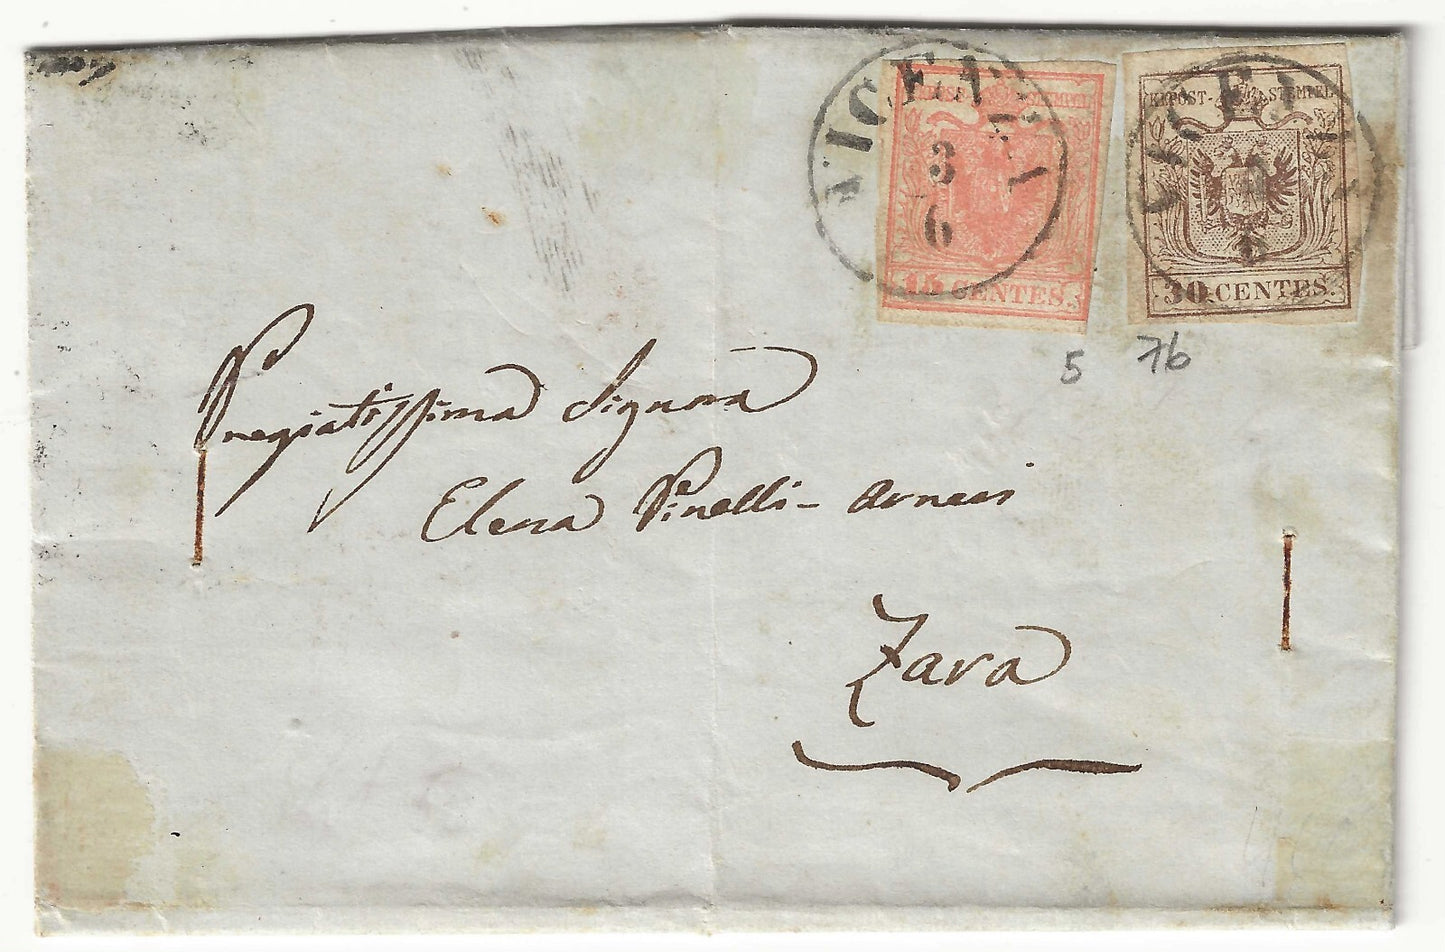 VICENZA
3
6
KKPOST-STEMPEL
15 CENTES.
VICENZA
3
6
KKPOST-STEMPEL
30 CENTES.
5 7b
Pregiatissima Signora
Elena Pinelli-
Zara